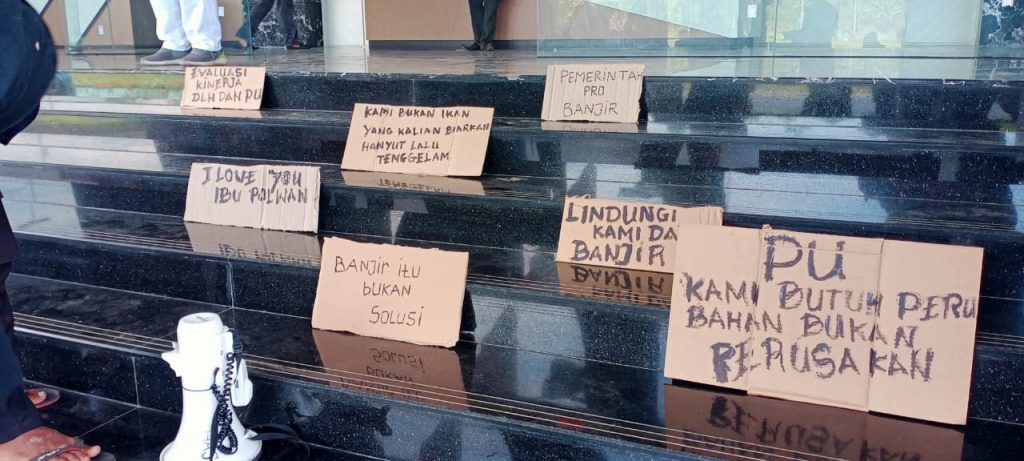 EVALUASI
KINERJA
DLH DAN PU
PEMERINTAH
PRO
BANJIR
KAMI BUKAN IKAN
YANG KALIAN BIARKAN
HANYUT LALU
TENGGELAM
I LOVE YOU
IBU POLWAN
LINDUNGI
KAMI DA
BANJIR
BANJIR ITU
BUKAN
SOLUSI
PU
KAMI BUTUH PERU
BAHAN BUKAN
PERUSAKAN